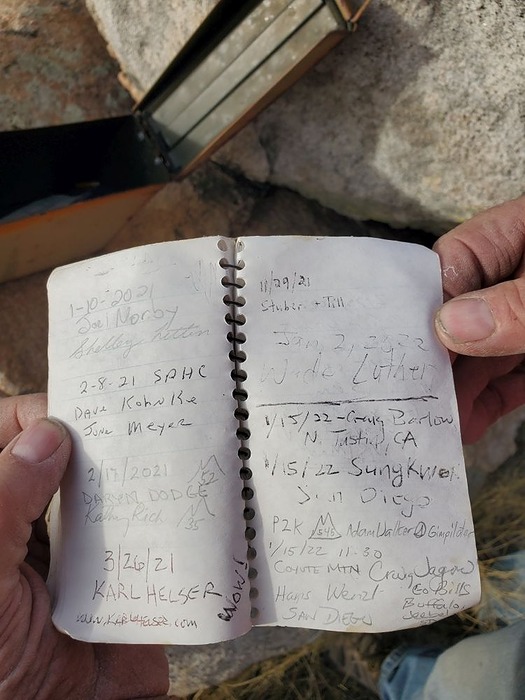 1-10-2021
Joel Norby
Shelley
2-8-21 SDHC
DAVE KohnKe
June Meyer
2/17/2021
52
DARYN DODGE
Kathy Rich
35
3/26/21
KARL HELSER
WOW!
www.KARLHELSER.com
11/29/21
Stuber + Till
Jan 2, 2022
Wade Luther
1/15/22 - Craig Barlow
N. Tustin, CA
1/15/22 Sung Kwon
San Diego
P2K 545 Adam Walker Gimpilator
1/15/22 11:30
COYOTE MTN Craig Jagow
Hans Wenzl Go Bills
SAN DIEGO Buffalo,